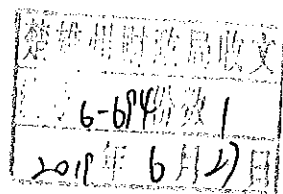 楚雄州财政局收文
6-694份数1
2018年6月27日